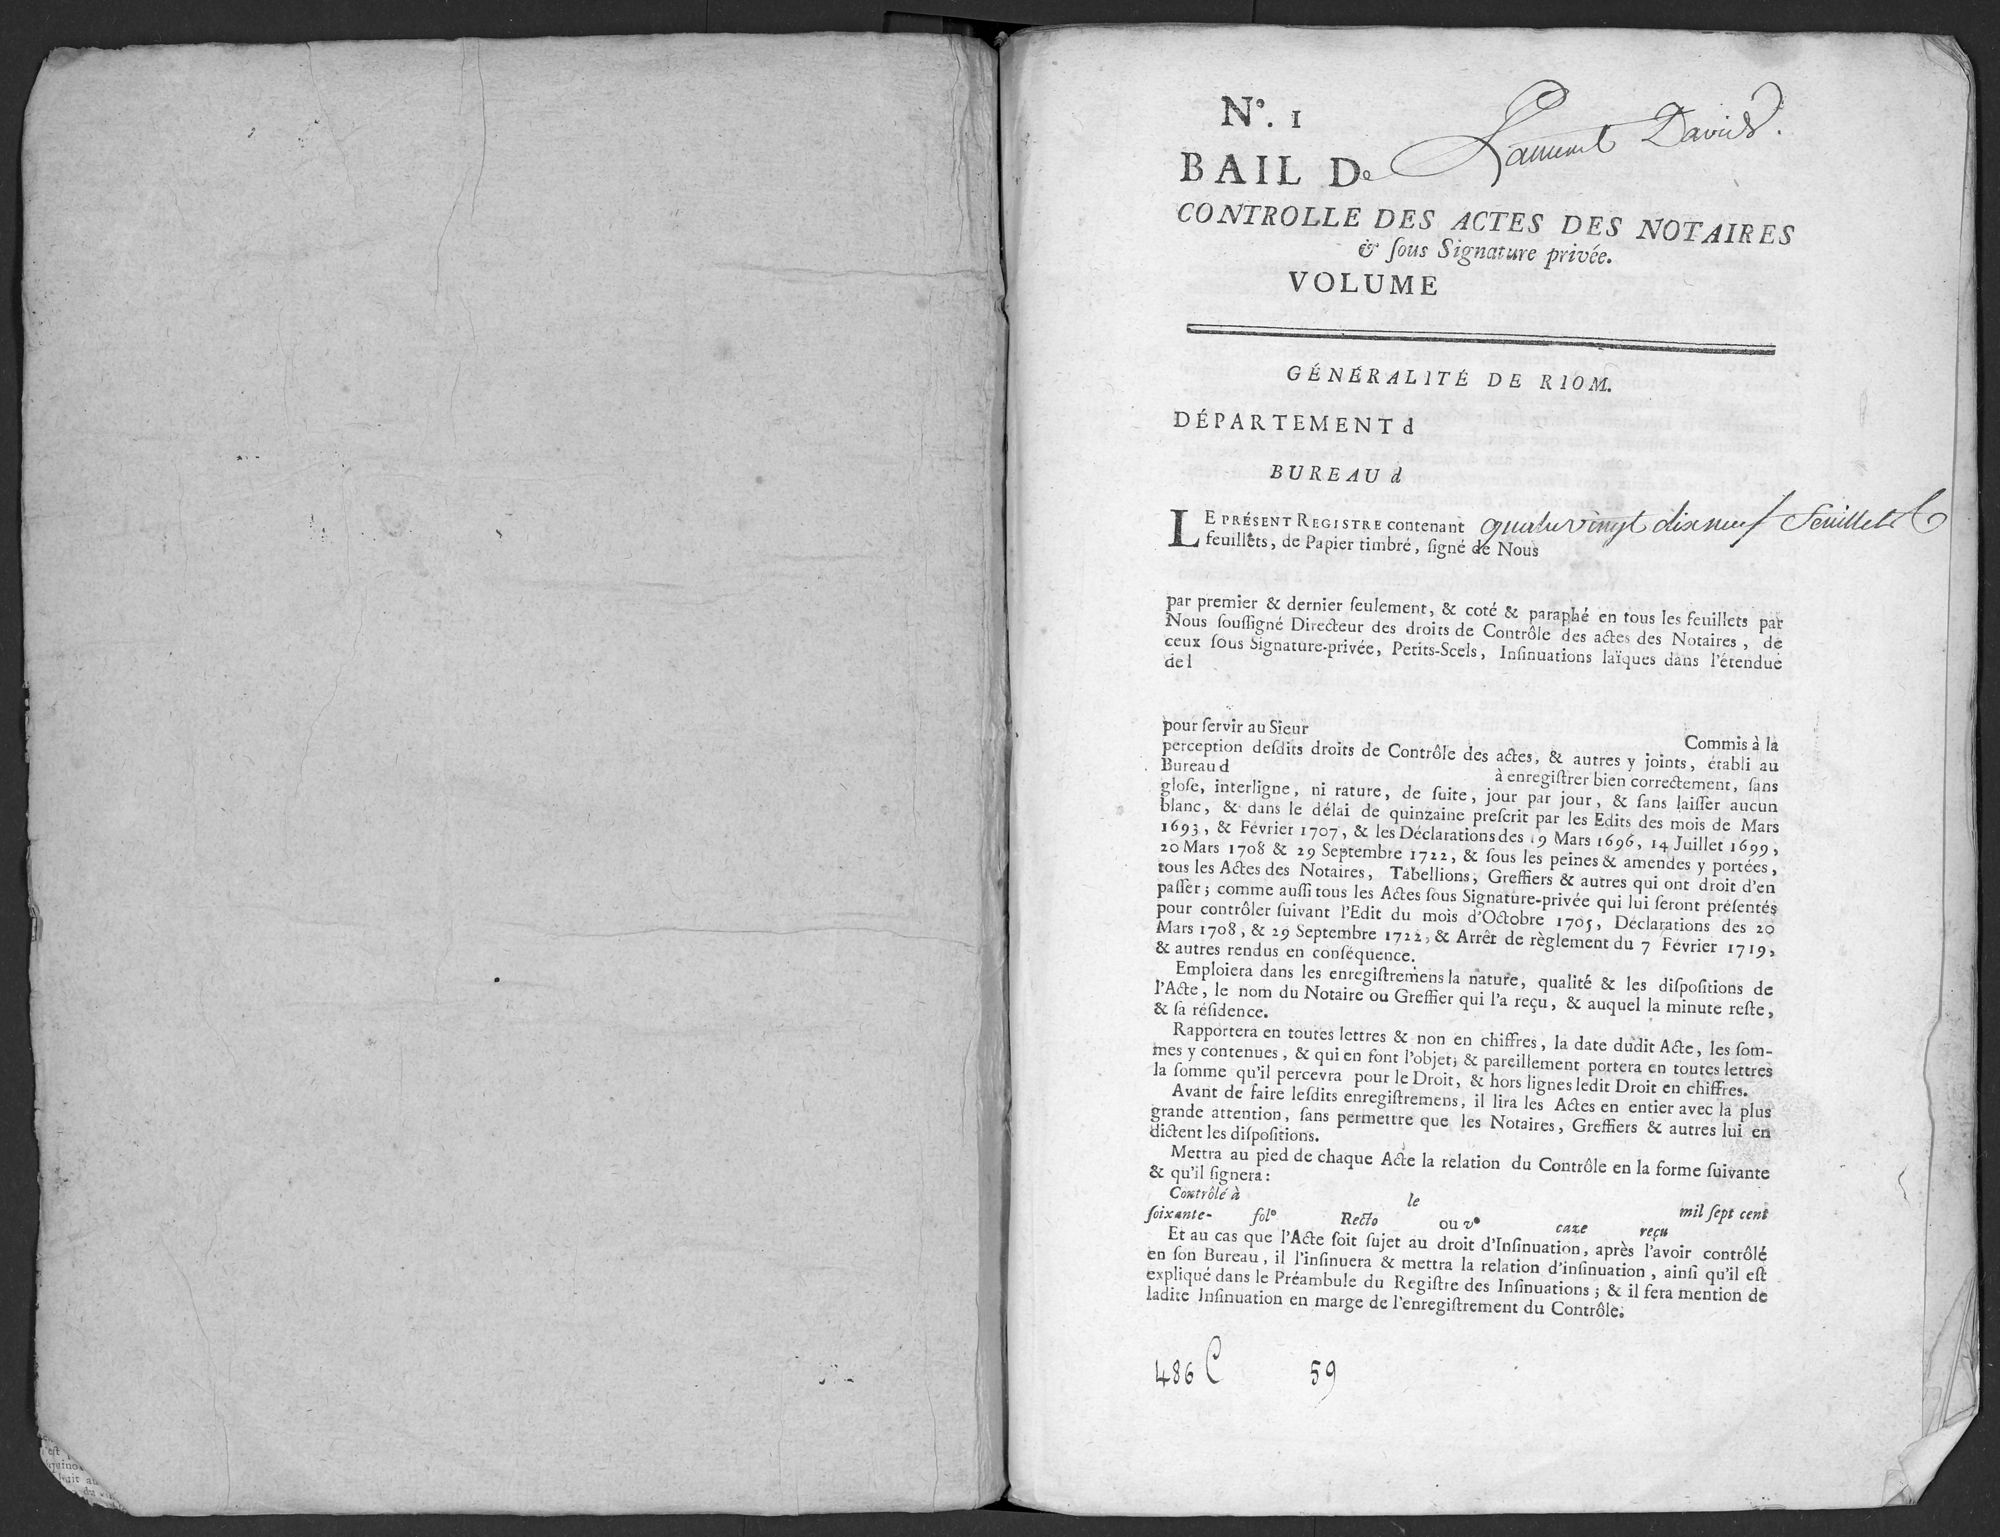 N°. 1
BAIL De Laurent David.
CONTROLLE DES ACTES DES NOTAIRES
& ſous Signature privée.
VOLUME
GÉNÉRALITÉ DE RIOM.
DÉPARTEMENT d
BUREAU d
LE PRÉSENT REGISTRE contenant quatre vingt dix neuf feuillets
feuillets, de Papier timbré, ſigné de Nous
par premier & dernier ſeulement, & coté & paraphé en tous les feuillets par
Nous ſouſſigné Directeur des droits de Contrôle des actes des Notaires, de
ceux ſous Signature-privée, Petits-Scels, Inſinuations laïques dans l'étendue
de l
pour ſervir au Sieur Commis à la
perception deſdits droits de Contrôle des actes, & autres y joints, établi au
Bureau d à enregiſtrer bien correctement, ſans
gloſe, interligne, ni rature, de ſuite, jour par jour, & ſans laiſſer aucun
blanc, & dans le délai de quinzaine preſcrit par les Edits des mois de Mars
1693, & Février 1707, & les Déclarations des 19 Mars 1696, 14 Juillet 1699,
20 Mars 1708 & 29 Septembre 1722, & ſous les peines & amendes y portées,
tous les Actes des Notaires, Tabellions, Greffiers & autres qui ont droit d'en
paſſer; comme auſſi tous les Actes ſous Signature-privée qui lui ſeront préſentés
pour contrôler ſuivant l'Edit du mois d'Octobre 1705, Déclarations des 20
Mars 1708, & 29 Septembre 1722, & Arrêt de règlement du 7 Février 1719,
& autres rendus en conſéquence.
Emploiera dans les enregiſtremens la nature, qualité & les diſpoſitions de
l'Acte, le nom du Notaire ou Greffier qui l'a reçu, & auquel la minute reſte,
& ſa réſidence.
Rapportera en toutes lettres & non en chiffres, la date dudit Acte, les ſom-
mes y contenues, & qui en font l'objet; & pareillement portera en toutes lettres
la ſomme qu'il percevra pour le Droit, & hors lignes ledit Droit en chiffres.
Avant de faire leſdits enregiſtremens, il lira les Actes en entier avec la plus
grande attention, ſans permettre que les Notaires, Greffiers & autres lui en
dictent les diſpoſitions.
Mettra au pied de chaque Acte la relation du Contrôle en la forme ſuivante
& qu'il ſignera:
Contrôlé à le mil ſept cent
ſoixante- fol° Recto ou v° caze reçu
Et au cas que l'Acte ſoit ſujet au droit d'Inſinuation, après l'avoir contrôlé
en ſon Bureau, il l'inſinuera & mettra la relation d'inſinuation, ainſi qu'il eſt
expliqué dans le Préambule du Regiſtre des Inſinuations; & il fera mention de
ladite Inſinuation en marge de l'enregiſtrement du Contrôle.
486 C 59